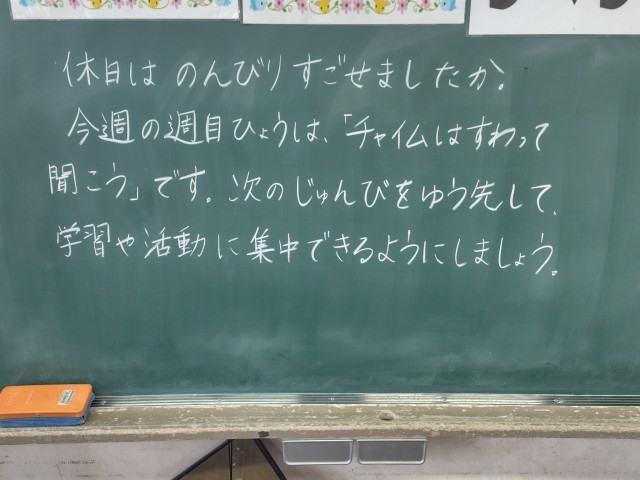 休日は のんびりすごせましたか。
今週の週目ひょうは、「チャイムはすわって
聞こう」です。次のじゅんびをゆう先して、
学習や活動に集中できるようにしましょう。